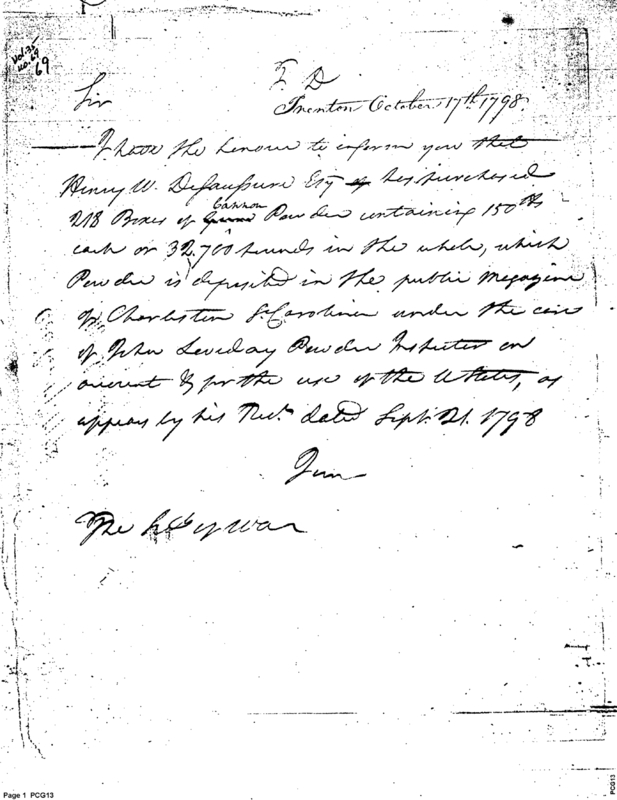 Vol. 35
No. 69
69
T. D
Sir
Trenton October 17th. 1798.
I have the honour to inform you that
Henry W. Desaussure Esq has purchased
Cannon
218 Boxes of Powder containing 150 lbs
each or 32,700 pounds in the whole, which
Powder is deposited in the public Magazine
of Charleston S. Carolina under the care
of John Loveday Powder Inspector on
account & for the use of the UStates, as
appears by his Rect. dated Sept. 21. 1798
I am
The Secy War
Page 1 PCG13
PCG13